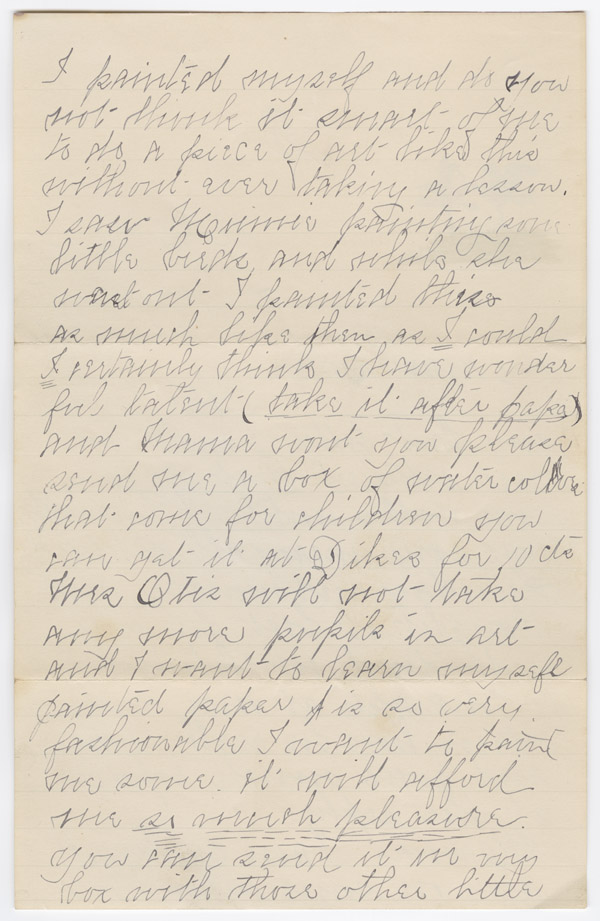 I painted myself and do you
not think it smart of me
to do a piece of art like this
without ever taking a lesson.
I saw Minnie painting some
little birds and while she
went out I painted these
as much like them as I could
I certainly think I have wonder
ful latent (take it after papa)
and Mama wont you please
send me a box of water colors
that come for children you
can get it at Dikes for 10 cts
Mrs Otis will not take
any more pupils in art
and I want to learn myself
painted paper is so very
fashionable I want to paint
me some. it will afford
me so much pleasure.
you can send it in my
box with those other little